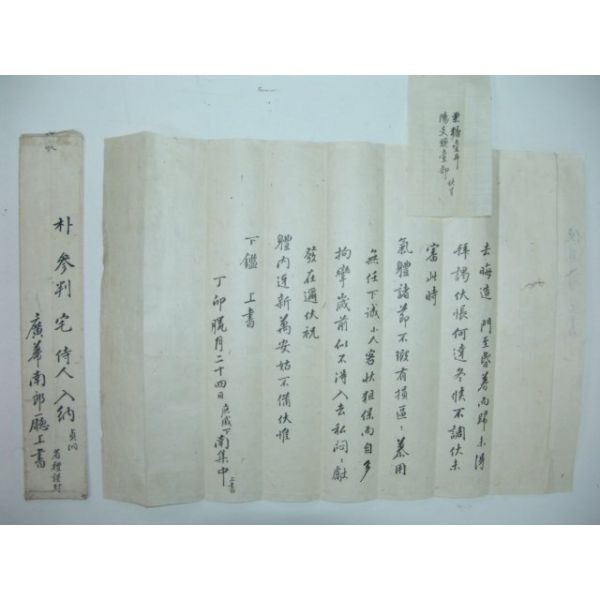 去晦造 門至昏暮而歸未得
拜謁伏悵何達冬候不調伏未
審此時
氣體諸節不瑕有損區〻慕用
無任下誠小人客狀粗保而自多
拘攣歲前似不得入去私悶〻獻
發在邇伏祝
體內迓新萬安姑不備伏惟
下鑑 上書
丁卯臘月二十四日 下南集中 上書
朴參判宅侍人入納 貞洞
廣華南郎廳上書 省禮謹封